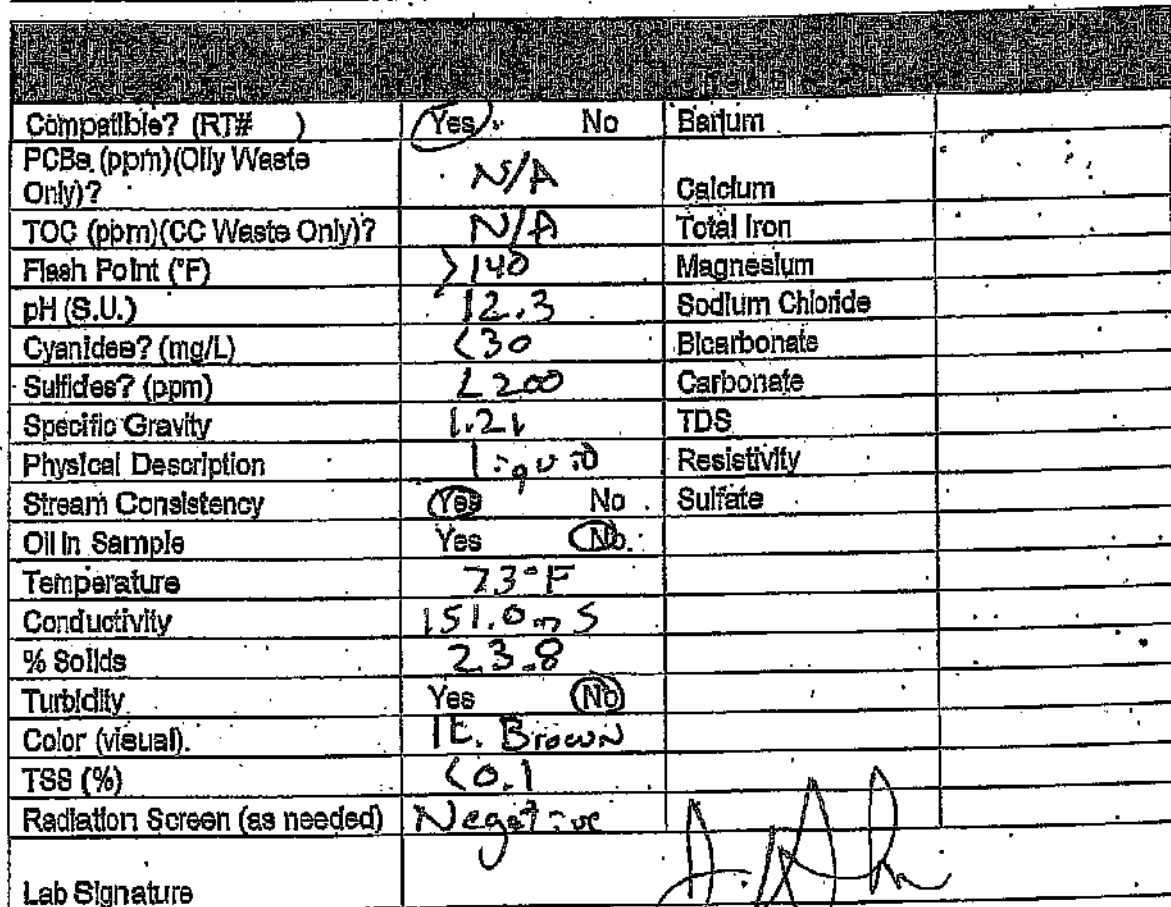 Compatible? (RT# ) Yes No Barium
PCBs (ppm)(Oily Waste Only)? N/A Calcium
TOC (ppm)(CC Waste Only)? N/A Total Iron
Flash Point (°F) >140 Magnesium
pH (S.U.) 12.3 Sodium Chloride
Cyanides? (mg/L) <30 Bicarbonate
Sulfides? (ppm) <200 Carbonate
Specific Gravity 1.21 TDS
Physical Description liquid Resistivity
Stream Consistency Yes No Sulfate
Oil in Sample Yes No
Temperature 73°F
Conductivity 151.0 mS
% Solids 23.8
Turbidity Yes No
Color (visual). lt. Brown
TSS (%) <0.1
Radiation Screen (as needed) Negative
Lab Signature